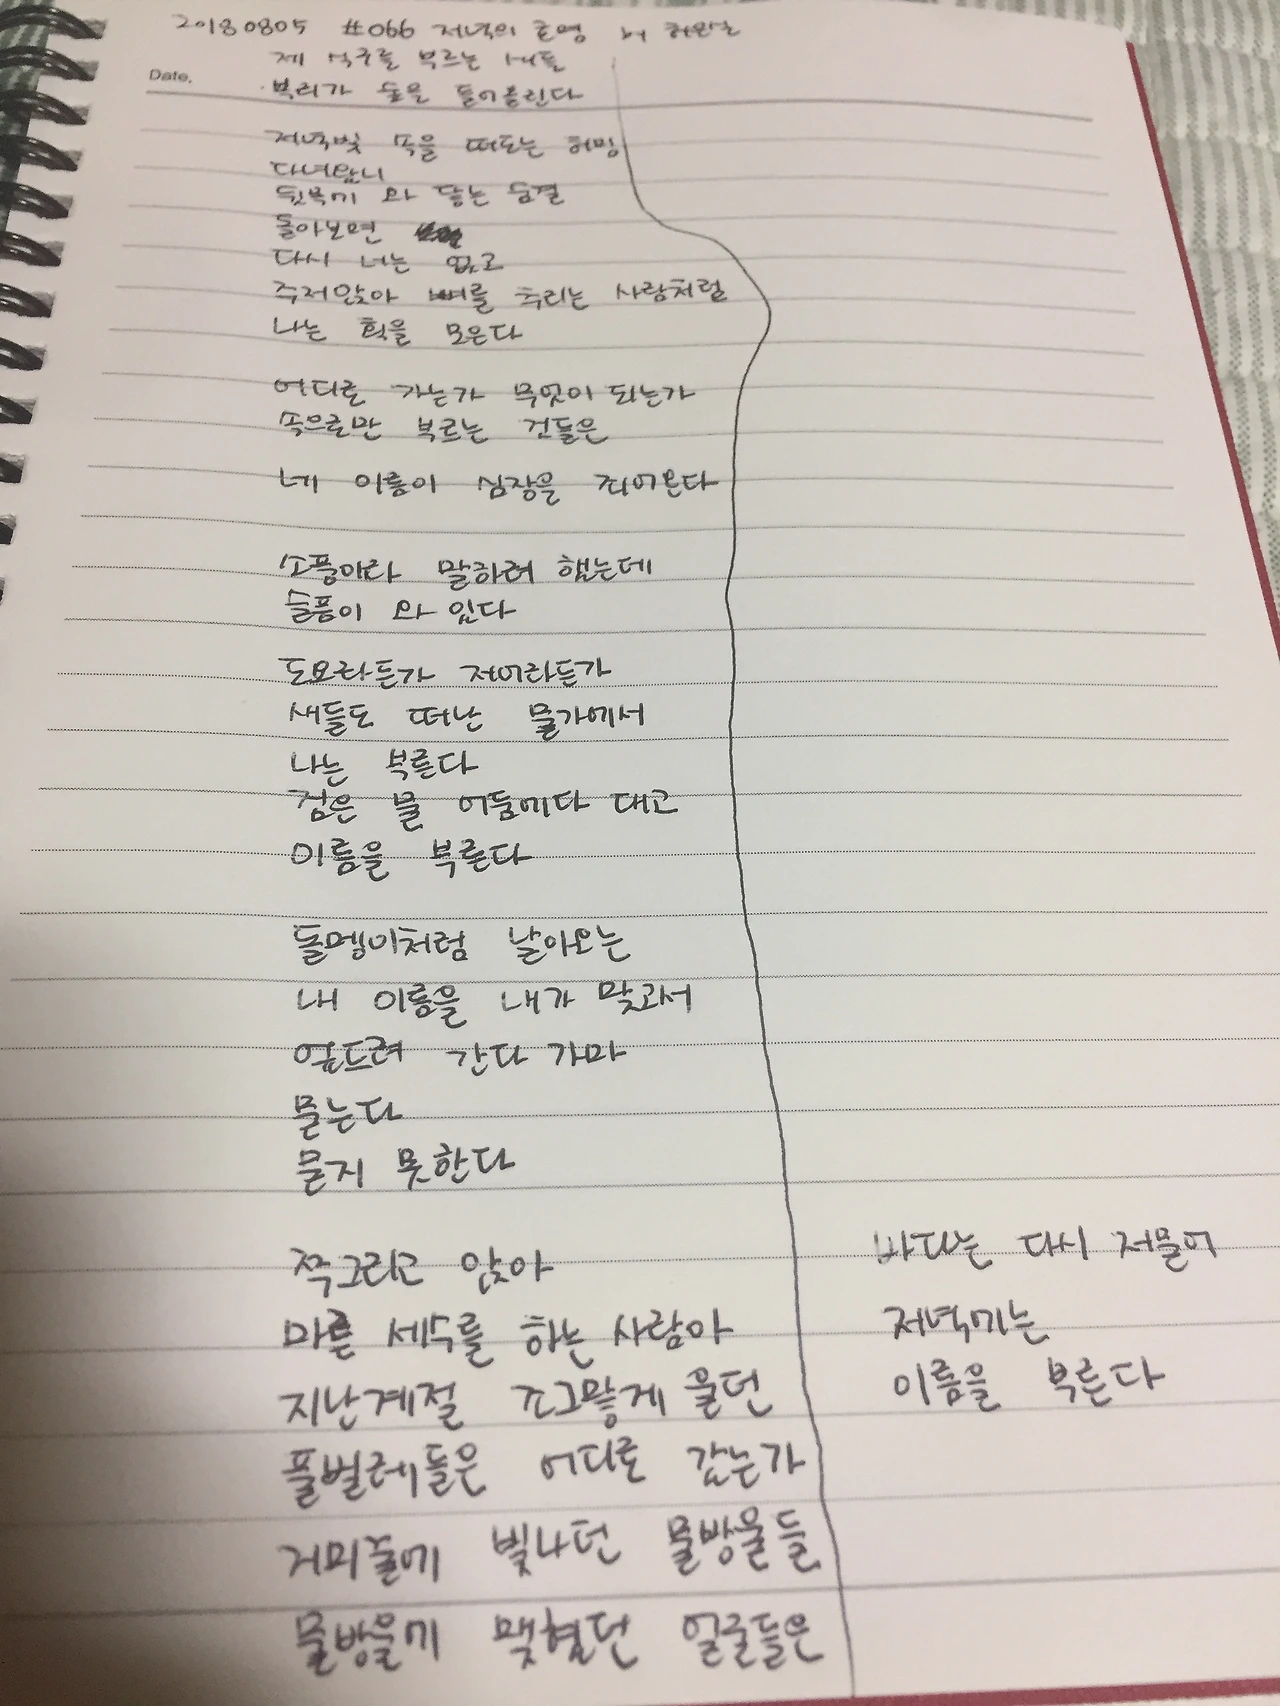 20180805 #066 저녁의 호명 by 허은실
제 식구를 부르는 새들
부리가 숲을 들어올린다
Date.
저녁빛 속을 떠도는 허밍
다녀왔니
뒷목에 와 닿는 숨결
돌아보면
다시 너는 없고
주저앉아 뼈를 추리는 사람처럼
나는 획을 모은다
어디로 가는가 무엇이 되는가
속으로만 부르는 것들은
네 이름이 심장을 죄어온다
소풍이라 말하려 했는데
슬픔이 와 있다
도요라든가 저어라든가
새들도 떠난 물가에서
나는 부른다
검은 물 어둠에다 대고
이름을 부른다
돌멩이처럼 날아오는
내 이름을 내가 맞고서
엎드려 간다 가마
묻는다
묻지 못한다
쭈그리고 앉아
마른 세수를 하는 사람아
지난계절 조그맣게 울던
풀벌레들은 어디로 갔는가
거미줄에 빛나던 물방울들
물방울에 맺혔던 얼굴들은
바다는 다시 저물어
저녁에는
이름을 부른다